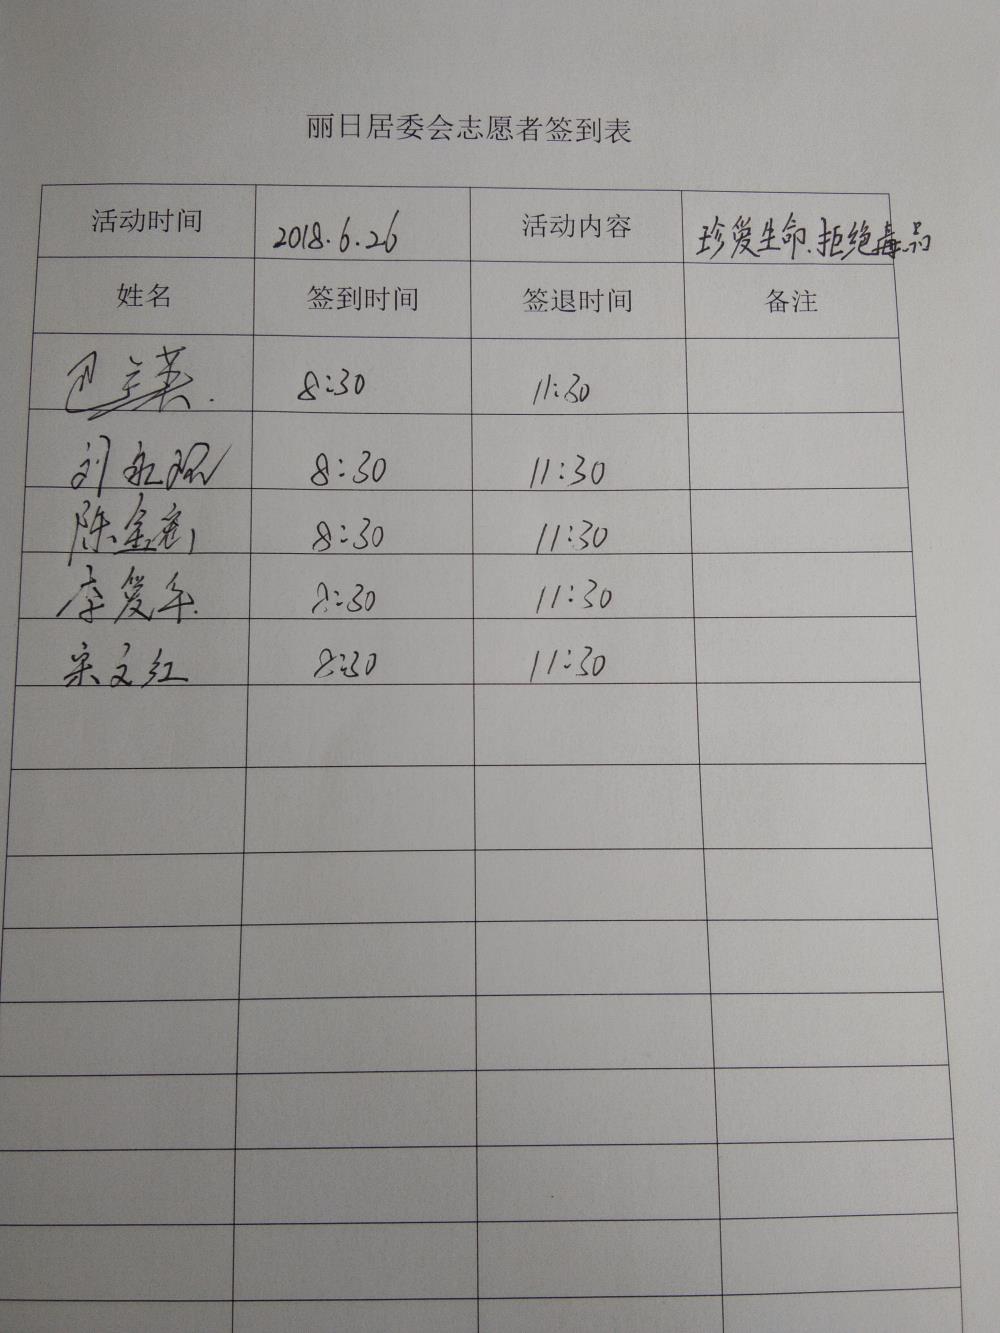 丽日居委会志愿者签到表
活动时间 2018.6.26 活动内容 珍爱生命.拒绝毒品
姓名 签到时间 签退时间 备注
8:30 11:30
刘 8:30 11:30
陈金 8:30 11:30
李爱华. 8:30 11:30
宋文红 8:30 11:30